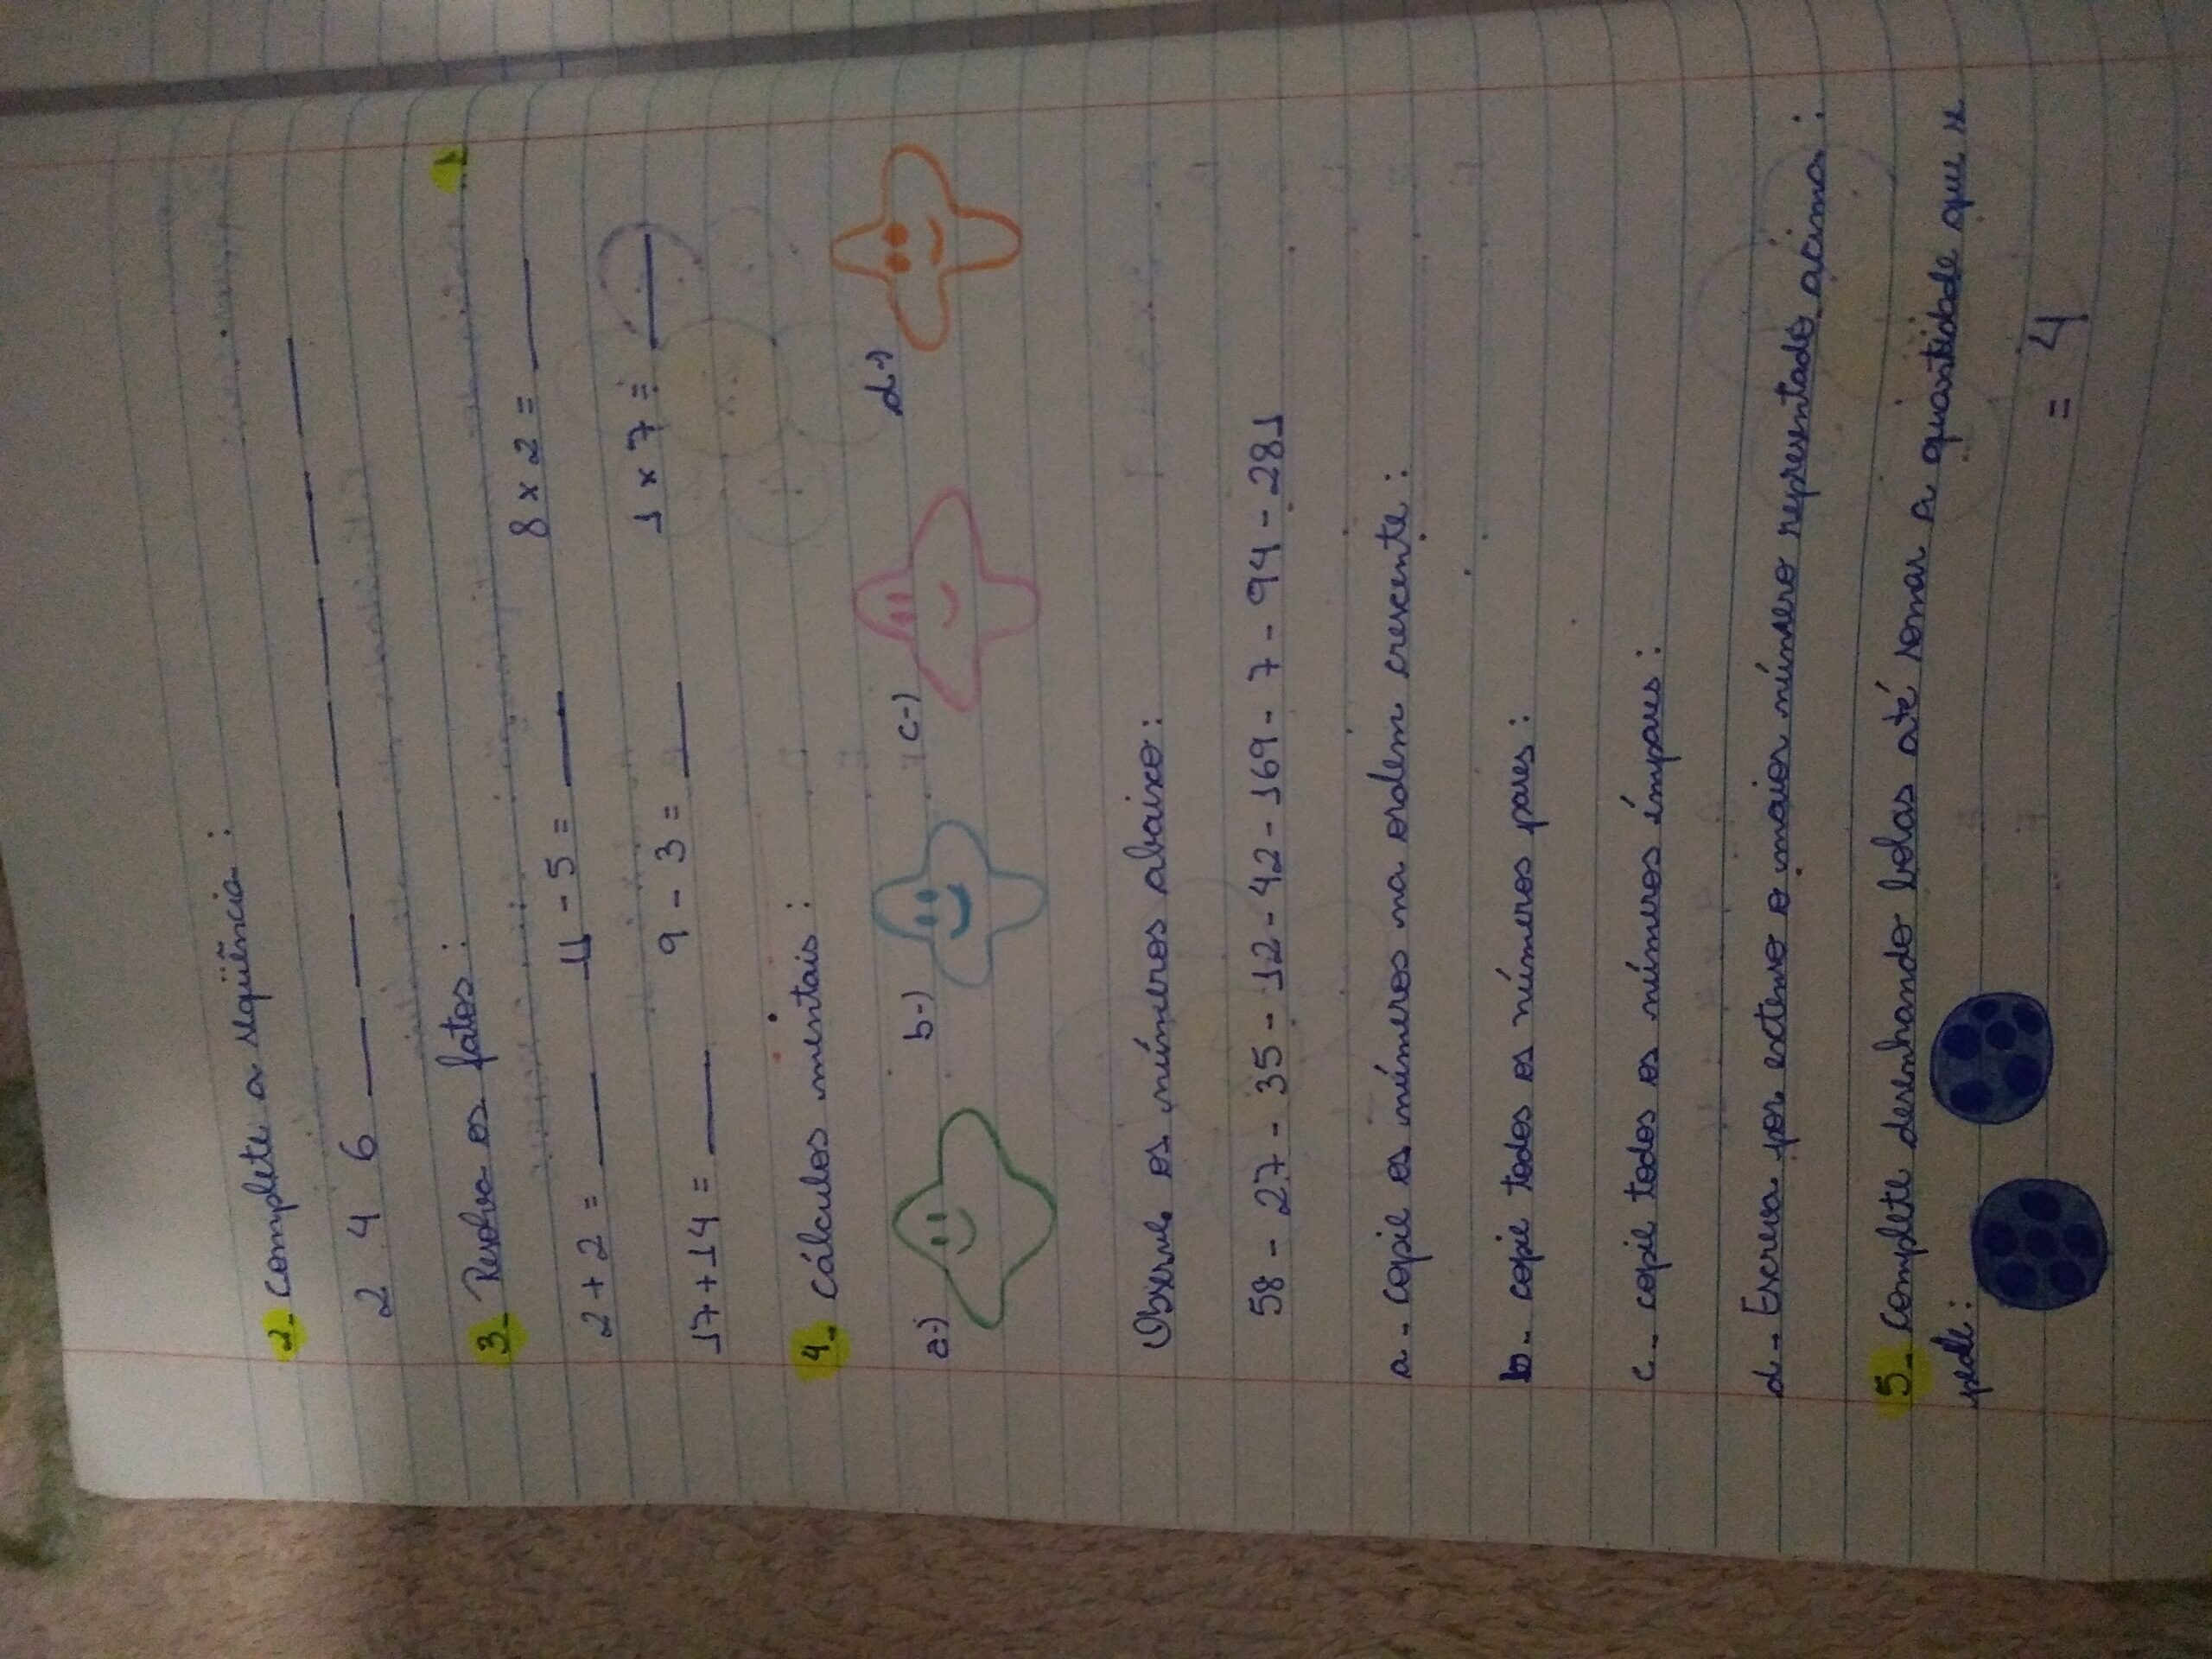 2- Complete a seqüência:
2 4 6 __ __ __ __ __ __ __
3- Resolva os fatos:
2 + 2 = __ 11 - 5 = __ 8 x 2 = __
17 + 14 = __ 9 - 3 = __ 1 x 7 = __
4- Cálculos mentais:
a-) b-) c-) d-)
Observe os números abaixo:
58 - 27 - 35 - 12 - 42 - 169 - 7 - 94 - 281
a- copie os números na ordem crescente:
b- copie todos os números pares:
c- copie todos os números ímpares:
d- Escreva por extenso o maior número representado acima:
5- Complete desenhando bolas até somar a quantidade que se
pede:
= 4